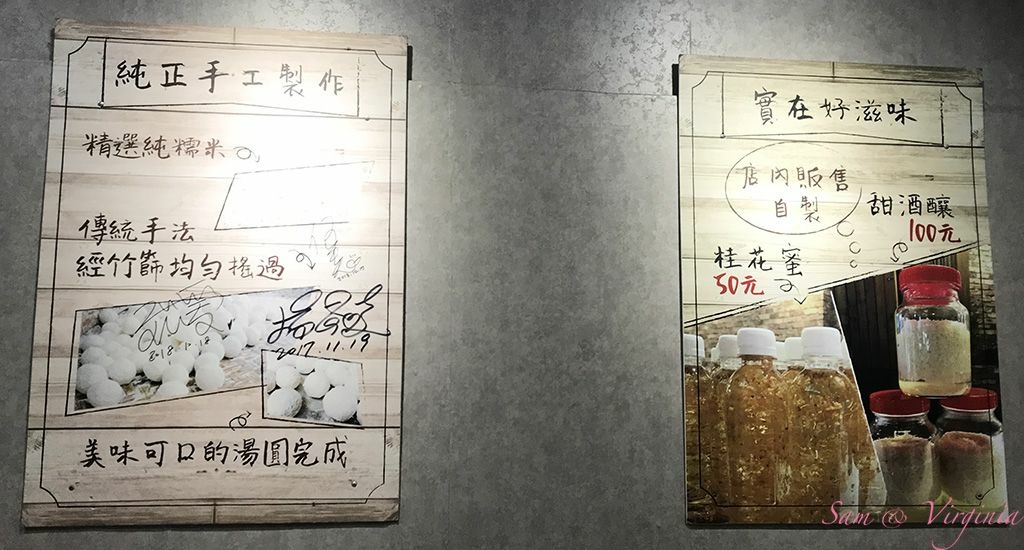 純正手工製作
精選純糯米
傳統手法
經竹篩均勻搖過
2018.11.18
2017.11.19
美味可口的湯圓完成
實在好滋味
店內販售
自製
甜酒釀
100元
桂花蜜
50元
Sam @ Virginia